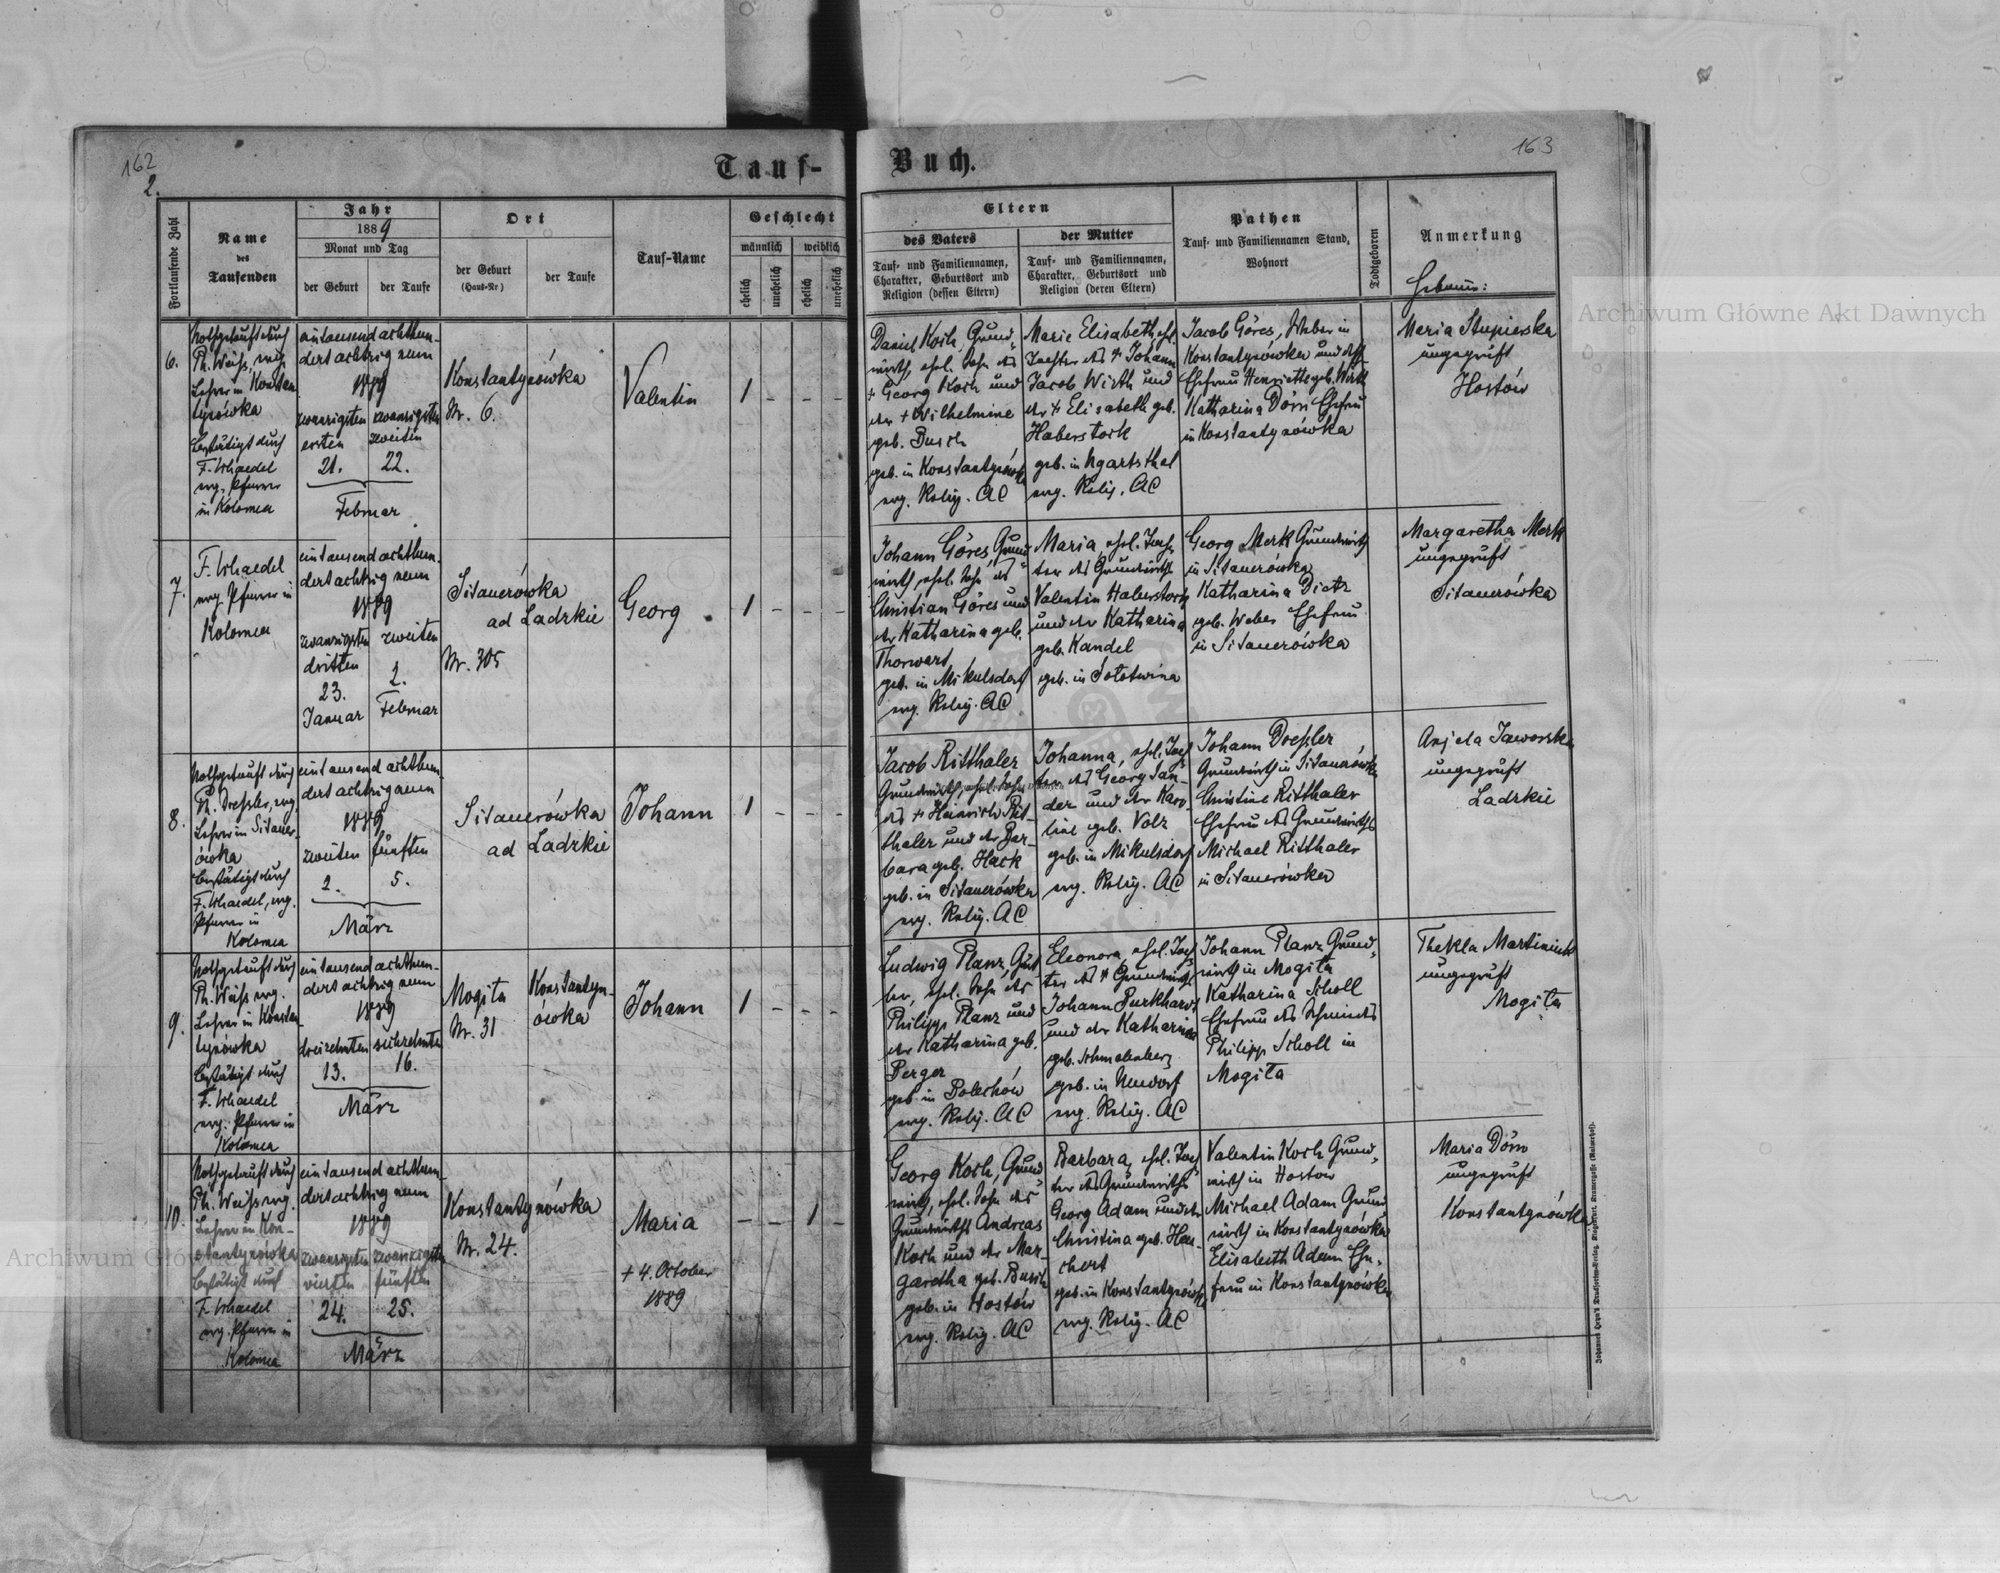 162
2.
Tauf-
Fortlaufende Zahl
Name
des
Taufenden
Jahr
1889
Monat und Tag
der Geburt
der Taufe
Ort
der Geburt
(Haus-Nr)
der Taufe
Tauf-Name
Geschlecht
männlich
weiblich
ehelich
unehelich
ehelich
unehelich
6.
Nothgetauft durch
Ph. Weiss, evg.
Lehrer in Konstan
tynówka
bestätigt durch
F. Schaedel
evg. Pfarrer
in Kolomea
eintausend achthun-
dert achtzig neun
1889
zwanzigsten
ersten
21.
zwanzigsten
zweiten
22.
Februar
Konstantynówka
Nr. 6.
Valentin
1 - - -
7.
F. Schaedel
evg. Pfarrer in
Kolomea
eintausend achthun-
dert achtzig neun
1889
zwanzigsten
dritten
23.
Januar
zweiten
2.
Februar
Sitauerówka
ad Ladzkie
Nr. 305
Georg
1 - - -
8.
Nothgetauft durch
Ph. Dressler, evg.
Lehrer in Sitauer-
ówka
bestätigt durch
F. Schaedel, evg.
Pfarrer in
Kolomea
eintausend achthun-
dert achtzig neun
1889
zweiten
2.
fünften
5.
März
Sitauerówka
ad Ladzkie
Johann
1 - - -
9.
Nothgetauft durch
Ph. Weiss evg.
Lehrer in Konstan-
tynówka
bestätigt durch
F. Schaedel
evg. Pfarrer in
Kolomea
eintausend achthun-
dert achtzig neun
1889
dreizehnten
13.
sechzehnten
16.
März
Mogiła
Nr. 31
Konstantyn-
ówka
Johann
1 - - -
10.
Nothgetauft durch
Ph. Weiss evg.
Lehrer in Kon-
stantynówka
bestätigt durch
F. Schaedel
evg. Pfarrer in
Kolomea
eintausend achthun-
dert achtzig neun
1889
zwanzigsten
vierten
24.
zwanzigsten
fünften
25.
März
Konstantynówka
Nr. 24.
Maria
+ 4. October
1889
- - 1 -
163
Buch.
Eltern
des Vaters
Tauf- und Familiennamen,
Charakter, Geburtsort und
Religion (dessen Eltern)
der Mutter
Tauf- und Familiennamen,
Charakter, Geburtsort und
Religion (deren Eltern)
Pathen
Tauf- und Familiennamen Stand,
Wohnort
Todtgeboren
Anmerkung
Hebamme:
Daniel Koch, Grund-
wirth, ehel. Sohn des
+ Georg Koch und
der + Wilhelmine
geb. Busch
geb. in Konstantynówka
evg. Relig. AC
Marie Elisabeth, ehl.
Tochter des + Johann
Jacob Wirth und
der + Elisabeth geb.
Haberstock
geb. in Ugartsthal
evg. Relig. AC
Jacob Göres, Weber in
Konstantynówka und dess.
Ehefrau Henriette geb. Wirth
Katharina Dörn Ehefrau
in Konstantynówka
Maria Stupierska
ungeprüft
Hostów
Johann Göres, Grund-
wirth, ehel. Sohn des
Christian Göres und
der Katharina geb.
Thorwart
geb. in Mikulsdorf
evg. Relig. AC
Maria, ehel. Toch-
ter des Grundwirths
Valentin Haberstock
und der Katharina
geb. Kandel
geb. in Sołotwina
Georg Merk Grundwirth
in Sitauerówka
Katharina Dietz
geb. Weber Ehefrau
in Sitauerówka
Margaretha Merk
ungeprüft
Sitauerówka
Jacob Ritthaler
Grundwirth, ehel. Sohn
des + Heinrich Rit-
thaler und der Bar-
bara geb. Hack
geb. in Sitauerówka
evg. Relig. AC
Johanna, ehel. Toch-
ter des Georg San-
der und der Karo-
line geb. Volz
geb. in Mikulsdorf
evg. Relig. AC
Johann Dressler
Grundwirth in Sitauerówka
Christine Ritthaler
Ehefrau des Grundwirths
Michael Ritthaler
in Sitauerówka
Anjela Jaworska
ungeprüft
Ladzkie
Ludwig Planz,
ehel. Sohn des
Philipp Planz und
der Katharina geb.
Berger
geb. in Bolechów
evg. Relig. AC
Eleonora, ehel. Toch-
ter des + Grundwirths
Johann Burkhard
und der Katharina
geb. Schmalenberg
geb. in Neudorf
evg. Relig. AC
Johann Planz Grund-
wirth in Mogiła
Katharina Scholl
Ehefrau des Schmiedes
Philipp Scholl in
Mogiła
Thekla Martiniuk
ungeprüft
Mogiła
Georg Koch, Grund-
wirth, ehel. Sohn des
Grundwirths Andreas
Koch und der Mar-
garetha geb. Busch
geb. in Hostów
evg. Relig. AC
Barbara, ehel. Toch-
ter des Grundwirths
Georg Adam und der
Christina geb. Hau-
chert
geb. in Konstantynówka
evg. Relig. AC
Valentin Koch Grund-
wirth in Hostow
Michael Adam Grund
wirth in Konstantynówka
Elisabeth Adam Ehe-
frau in Konstantynówka
Maria Dörn
ungeprüft
Konstantynówka
Archiwum Główne Akt Dawnych